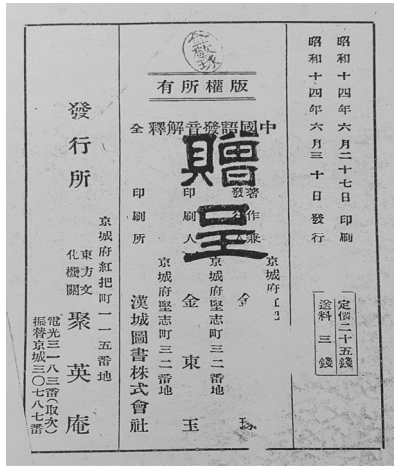 昭和十四年六月二十七日 印刷
昭和十四年六月三十日 發行
定價二十五錢
送料 三錢
版權所有
中國語發音解釋 全
贈呈
京城府
著作兼
金
印刷人
京城府堅志町三二番地
金東玉
印刷所
京城府堅志町三二番地
漢城圖書株式會社
發行所
京城府紅把町一一五番地
東方文
化機關
聚英庵
電光三一八三番(取次)
振替京城三〇七八七番